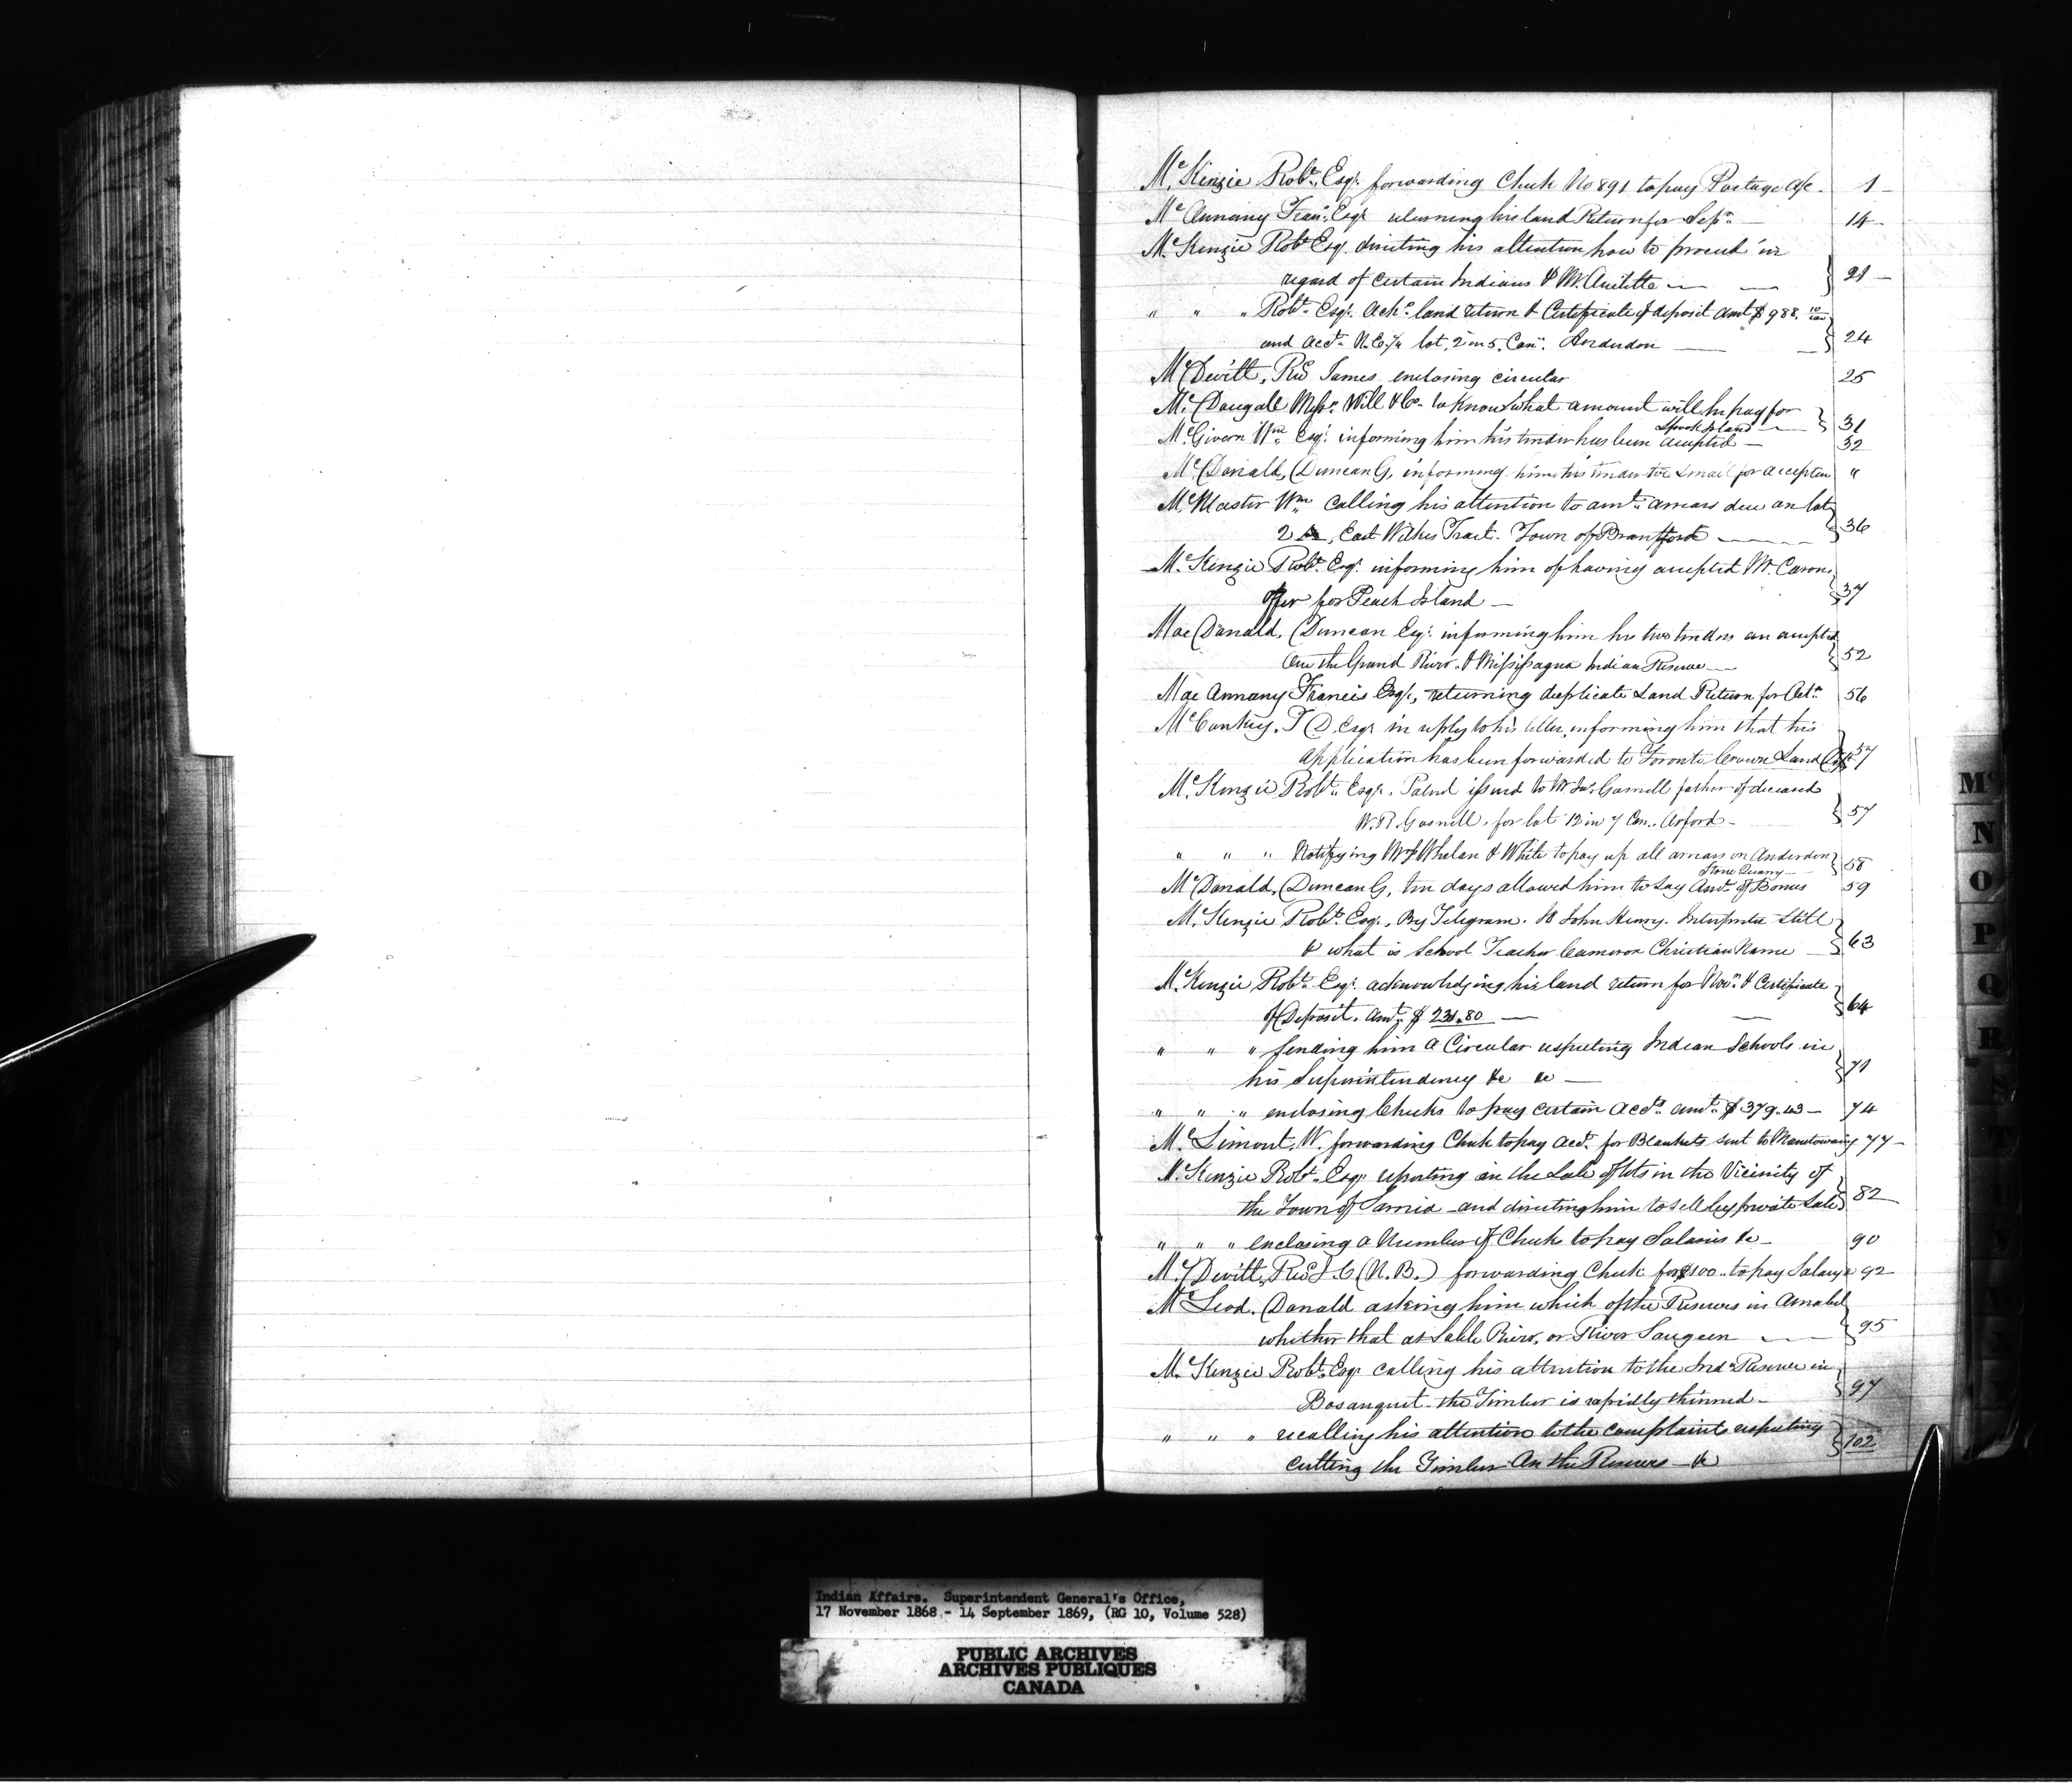 McKenzie Robt. Esqr. forwarding Check No 891 to pay Postage A/c - 1 -
McAnnany Frans. Esqr returning his land Return for Sepr. — 14 -
McKenzie Robt Esq. directing his attention how to proceed in
regard of Certain Indians & Mr. — — } 21 -
" " " Robt. Esqr. Ackg. land return & Certificate of deposit Amt $988. 10/100
and Acct. N.E. 1/4 lot, 2 in 5. Con. Anderdon — — } 24
McDevitt, Revd James enclosing circular 25
McDougall Messrs. Will & Co. to know what amount will he pay for
Island — } 31
McGivern Wm Esqr. informing him his tender has been accepted — 32
McDonald, Duncan G, informing him his tender too small for accepten "
McMaster Wm calling his attention to amt. arrears due on lot
2 East Wilkes Tract. Town of Brantford — } 36
McKenzie Robt. Esqr. informing him of having accepted Mr. Caron
offer for Peach Island — } 37
MacDonald, Duncan Esqr. informing him his two tenders are accepted
On the Grand River & Missisagua Indian Reserve — } 52
MacAnnany Francis Esqr, returning duplicate Land Return for Octr. 56
McConkey. T D. Esqr in reply to his letter, informing him that his
application has been forwarded to Toronto Crown Land Offi } 57
McKenzie Robt. Esqr. Patend issued to Mr Gosnell father of deceased
W. R. Gosnell. for lot 12 in 7 Con. Orford - } 57
" " " Notifying Whelan & White to pay up all arrears on Anderdon
Stone Quarry — } 58
McDonald, Duncan G, ten days allowed him to say Amt. of Bonus 59
McKenzie Robt. Esq., By Telegram. Is John Henry. Interpreter still
& what is School Teacher Cameron Christian Name — } 63
McKenzie Robt. Esqr. acknowledging his land return for Novr. & Certificate
of Deposit. Amt. $ 231.80 — — } 64
" " " sending him a Circular respecting Indian Schools in
his Superintendency &c &c — } 71
" " " enclosing Checks to pay certain Accts. amt. $379.43 — 74
McLimont, W. forwarding Check to pay Acct. for Blankets sent to Manitowaning 77 -
McKenzie Robt. Esqr reporting on the Sale of lots in the Vicinity of
the Town of Sarnia - and directing him to sell by private Sale } 82
" " " enclosing a Number of Checks to pay Salaries &c - 90
McDevitt, Revd J. C (N. B.) forwarding Check for $100.. to pay Salary 92
McLeod. Donald asking him which of the Reserves in Amabel
whether that at Sable River, or River Saugeen — } 95
McKenzie Robt. Esqr calling his attention to the Inda. Reserve in
Bosanquet. the Timber is rapidly thinned - } 97
" " " recalling his attention to the complaints respecting
cutting the Timber On the Reserves - &c } 102
M
N
O
P
Q
R
S
T
Indian Affairs. Superintendent General's Office,
17 November 1868 - 14 September 1869, (RG 10, Volume 528)
PUBLIC ARCHIVES
ARCHIVES PUBLIQUES
CANADA